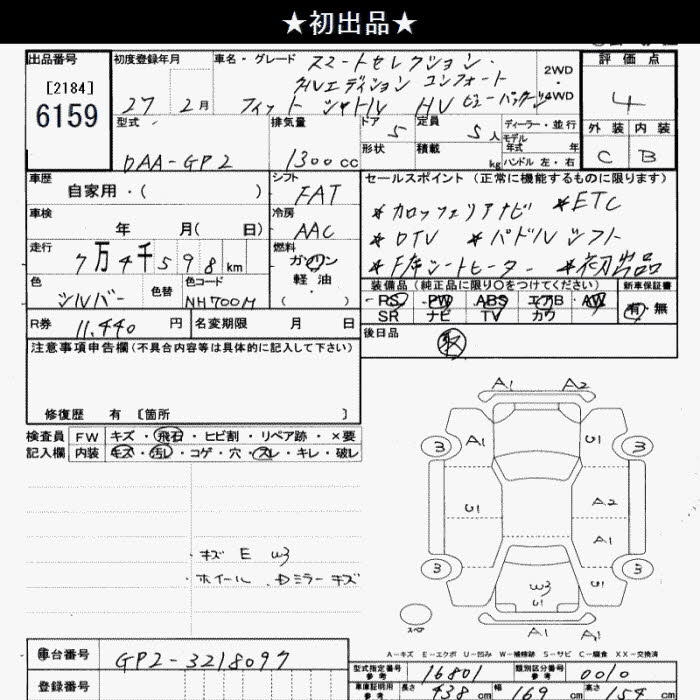 ★初出品★
出品番号
[2184]
6159
初度登録年月
27 2月
車名・グレード スマートセレクション・
クルエディション コンフォート
フィット シャトル HV ビューパッケージ
2WD
・
4WD
評価点
4
外装 内装
C B
型式
DAA-GP2
排気量
1300cc
ドア 5
定員 5人
形状
積載 kg
ディーラー・並行
モデル
年式 年
ハンドル 左・右
車歴
自家用・( )
シフト
FAT
車検
年 月( 日)
冷房
AAC
走行
7万4千598km
燃料
ガソリン
軽油
( ・ )
色
シルバー
色替
色コード
NH700M
R券 11,440円
名変期限 月 日
セールスポイント(正常に機能するものに限ります)
*カロッツェリアナビ *ETC
*DTV *パドルシフト
*F席シートヒーター *初出品
装備品(純正品に限り○をつけてください)
新車保証書
PS PW ABS エアB AW
SR ナビ TV カワ
有・無
後日品
取
注意事項申告欄(不具合内容等は具体的に記入して下さい)
修復歴 有 〔箇所 〕
検査員
記入欄
FW キズ・飛石・ヒビ割・リペア跡・×要
内装 キズ・汚レ・コゲ・穴・スレ・キレ・破レ
・キズ E W3
・ホイール・Dミラーキズ
A1 A2
A1 U1
3 3
U1 A2
A1
3 3
W3 U1
U1
A1 A1
スペア
A-キズ E-エクボ U-凹み W-補修跡 S-サビ C-腐食 XX-交換済
車台番号 GP2-3218097
登録番号
型式指定番号
参考
16801
類別区分番号
参考
0010
車庫証明用
参考
長さ 438cm 幅 169cm 高さ 154cm